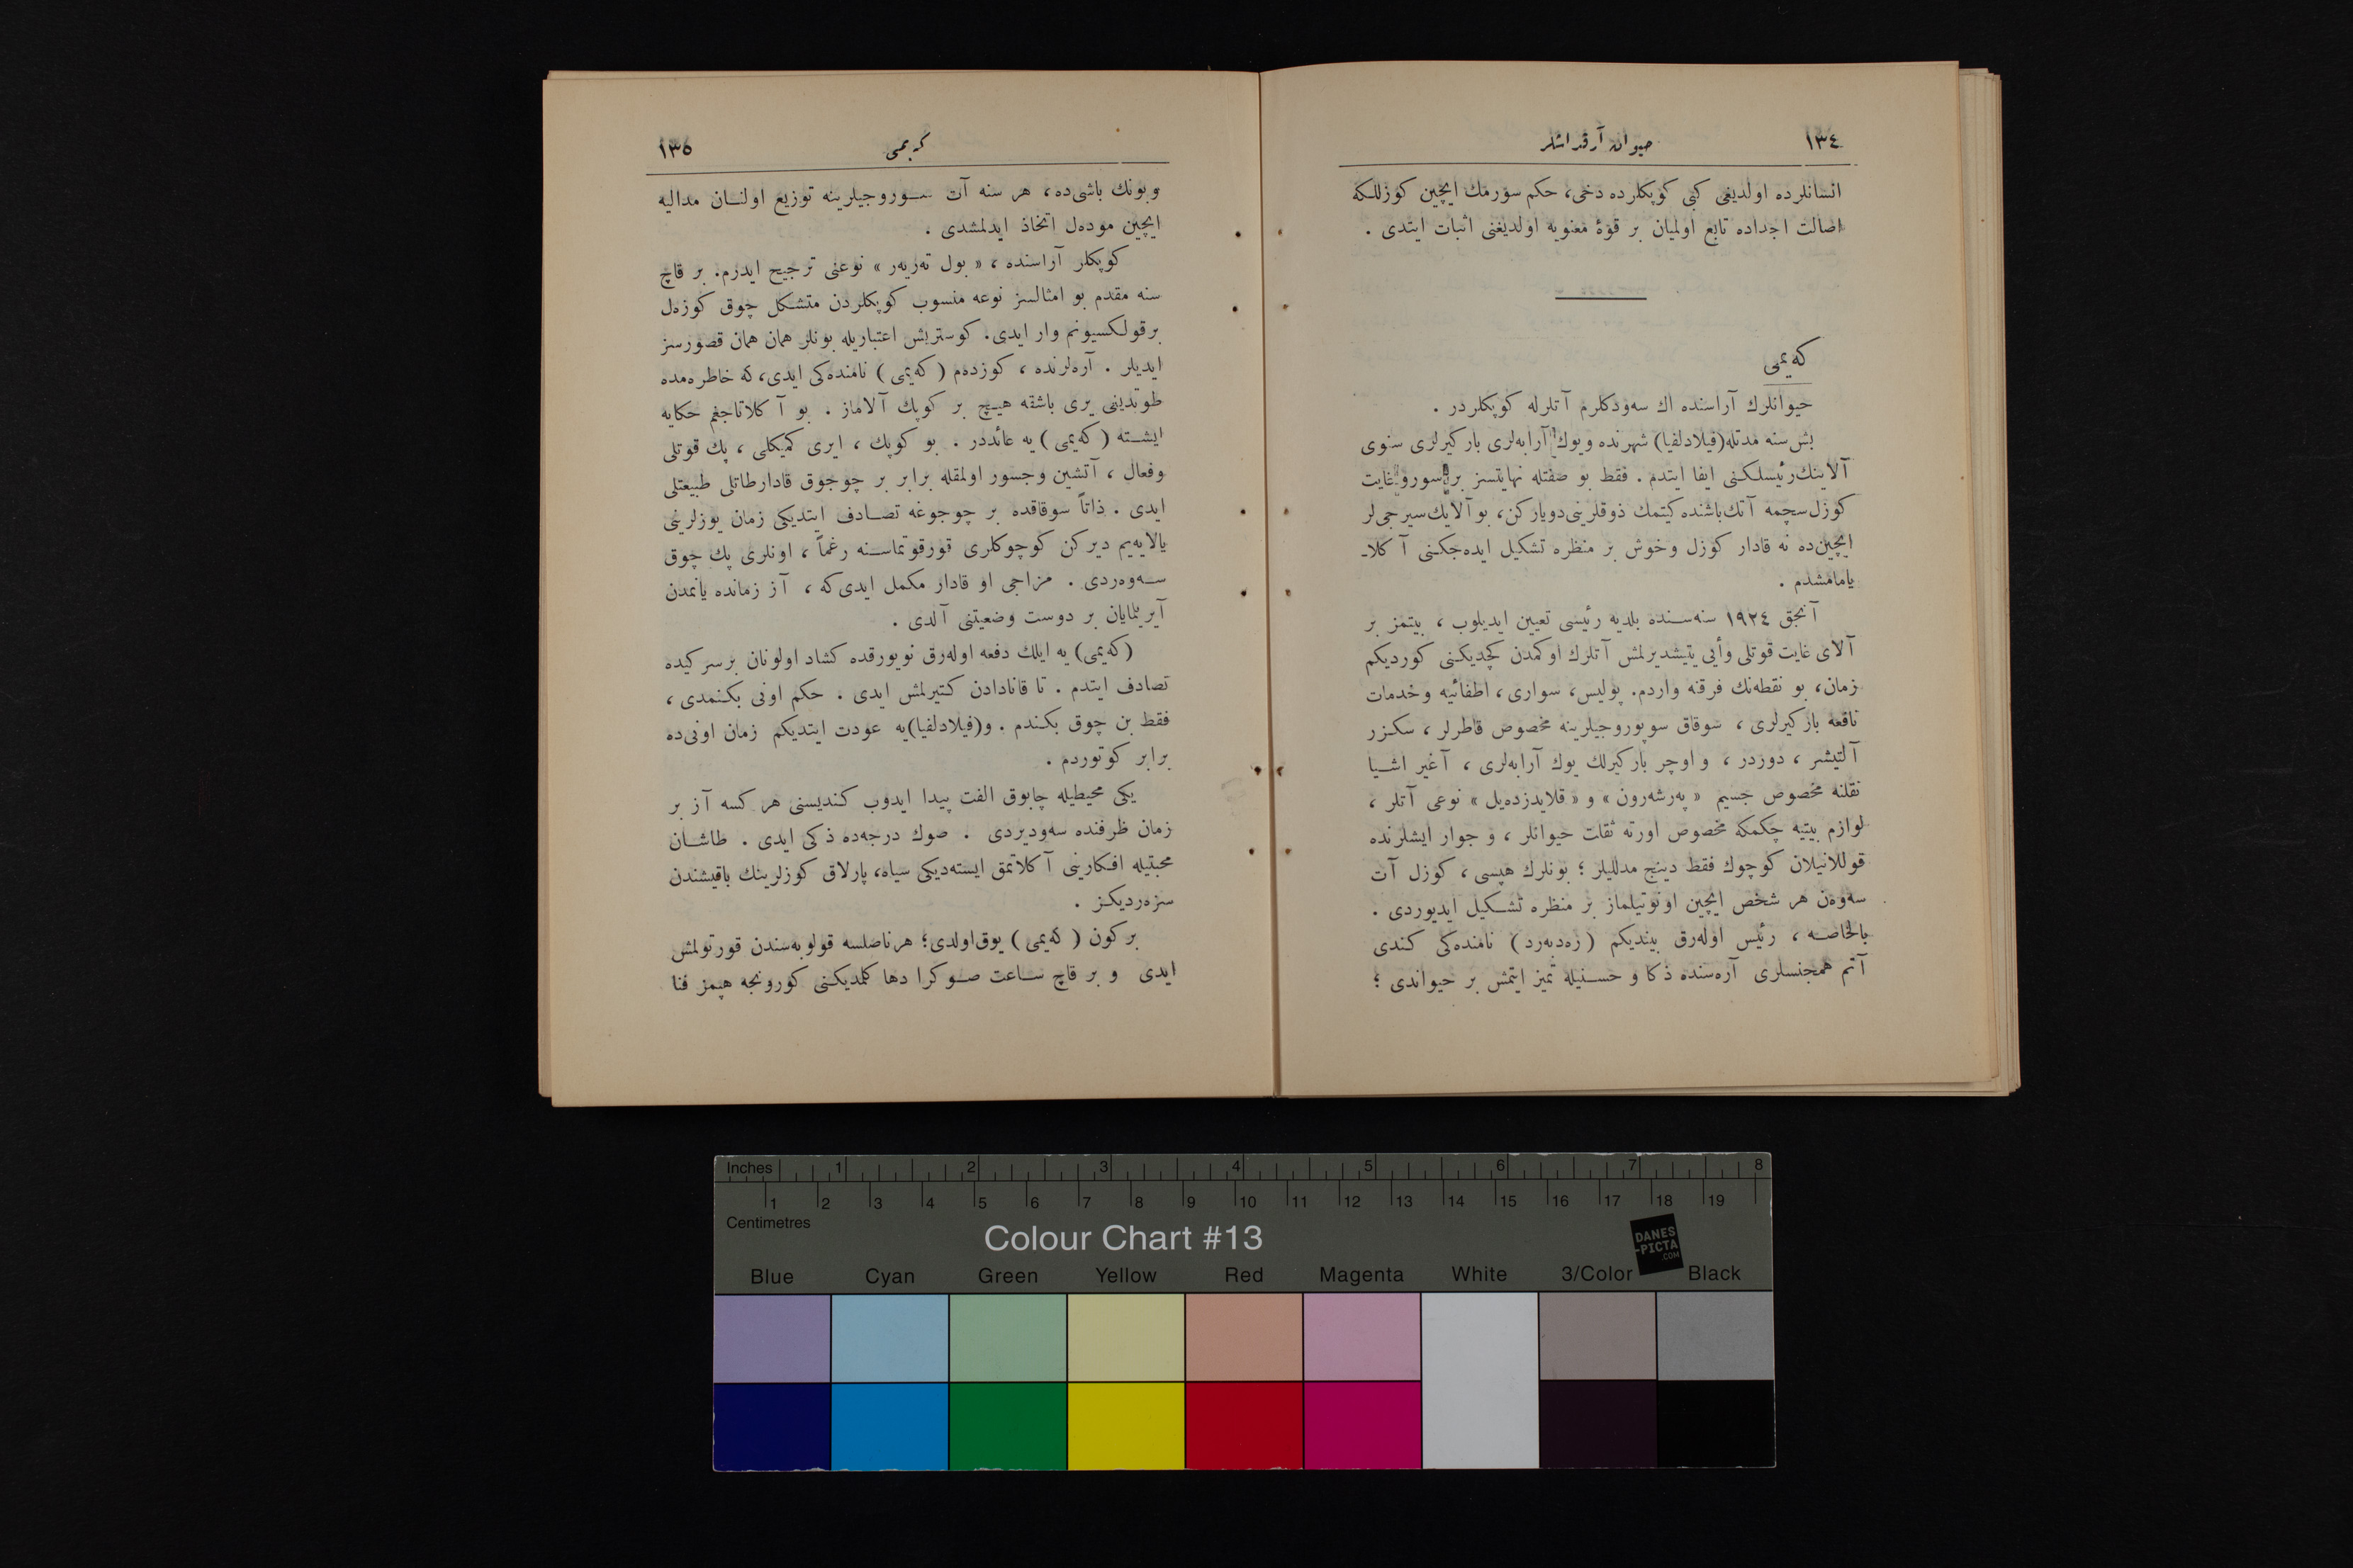 ١٣٤
حیوان آرقداشلر
انسانلرده اولدیغی کبی کوپکلرده دخی، حکم سورمك ایچین کوزللکه
اصالت اجداده تابع اولمیان بر قوهٔ معنویه اولدیغنی اثبات ایتدی .
که‌یمی
حیوانلرك آراسنده اك سه‌ودکلرم آتلرله کوپکلردر .
بش سنه مدتله (فیلادلفیا) شهرنده ویوك آرابه‌لری بارکیرلری سنوی
آلاینك رئیسلکنی ایفا ایتدم . فقط بو صفتله نهایتسز بر سورو غایت
کوزل سچمه آتك باشنده کیتمك ذوقلرینی دویارکن، بو آلایك سیرجی‌لر
ایچین‌ده نه قادار کوزل وخوش بر منظره تشکیل ایده‌جکنی آ کلا‌ـ
یامامشدم .
آنجق ١٩٢٤ سنه‌سنده بلدیه رئیسی تعیین ایدیلوب ، بیتمز بر
آلای غایت قوتلی وأیی یتیشدیرلمش آتلرك اوکمدن کچدیکنی کوردیکم
زمان، بو نقطه‌نك فرقنه واردم. پولیس، سواری، اطفائیه وخدمات
نافعه بارکیرلری ، سوقاق سوپوروجیلرینه مخصوص قاطرلر ، سکزر
آلتیشر ، دوردر ، و اوچر بارکیرلك یوك آرابه‌لری ، آغیر اشیا
نقلنه مخصوص جسیم « په‌رشه‌رون » و « قلایدزده‌یل » نوعی آتلر ،
لوازم بیتیه چکمکه مخصوص اورته ثقلت حیوانلر ، و جوار ایشلرنده
قوللانیلان کوچوك فقط دینج مدللیلر ؛ بونلرك هپسی ، کوزل آت
سه‌وه‌ن هر شخص ایچین اونوتیلماز بر منظره تشکیل ایدیوردی .
بالخاصه ، رئیس اوله‌رق بیندیکم (ره‌دبه‌رد) نامنده‌کی کندی
آتم همجنسلری آره‌سنده ذکا و حسنیله تمیز ایتمش بر حیواندی ؛
١٣٥
که‌یمی
وبونك باشی‌ده ، هر سنه آت سوروجیلرینه توزیع اولنان مدالیه
ایچین موده‌ل اتخاذ ایدلمشدی .
کوپکلر آراسنده ، « بول ته‌ریه‌ر » نوعنی ترجیح ایدرم. بر قاچ
سنه مقدم بو امثالسز نوعه منسوب کوپکلردن متشکل چوق کوزه‌ل
برقولکسیونم وار ایدی. کوستریش اعتباریله بونلر همان همان قصورسز
ایدیلر . آره‌لرنده ، کوزده‌م (که‌یمی) نامنده‌کی ایدی، که خاطره‌مده
طوتدینی یری باشقه هیچ بر کوپك آلاماز . بو آ کلاتاجغم حکایه
ایشته (که‌یمی) یه عائددر . بو کوپك ، ایری کمیکلی ، پك قوتلی
وفعال ، آتشین وجسور اولمقله برابر بر چوجوق قادار طاتلی طبیعتلی
ایدی . ذاتاً سوقاقده بر چوجوغه تصادف ایتدیکی زمان یوزلرینی
یالایه‌یم دیرکن کوچوکلری قورقوتماسنه رغماً ، اونلری پك چوق
سه‌وه‌ردی . مزاجی او قادار مکمل ایدی‌که ، آز زمانده یانمدن
آیریلمایان بر دوست وضعیتنی آلدی .
(که‌یمی) یه ایلك دفعه اوله‌رق نویورقده کشاد اولونان برسرکیده
تصادف ایتدم . تا قانادادن کتیرلمش ایدی . حکم اونی بکنمدی ،
فقط بن چوق بکندم . و(فیلادلفیا)یه عودت ایتدیکم زمان اونی‌ده
برابر کوتوردم .
یکی محیطیله چابوق الفت پیدا ایدوب کندیسنی هر کسه آز بر
زمان ظرفنده سه‌ودیردی . صوك درجه‌ده ذکی ایدی . طاشان
محبتیله افکارینی آ کلاتمق ایسته‌دیکی سیاه، پارلاق کوزلرینك باقیشندن
سزه‌ردیکز .
برکون (که‌یمی) یوق اولدی؛ هرناصلسه قولوبه‌سندن قورتولمش
ایدی و بر قاچ ساعت صوکرا دها کلمدیکنی کورونجه هپمز فنا
Inches 1 2 3 4 5 6 7 8
1 2 3 4 5 6 7 8 9 10 11 12 13 14 15 16 17 18 19
Centimetres
Colour Chart #13
DANES
-PICTA
.COM
Blue Cyan Green Yellow Red Magenta White 3/Color Black